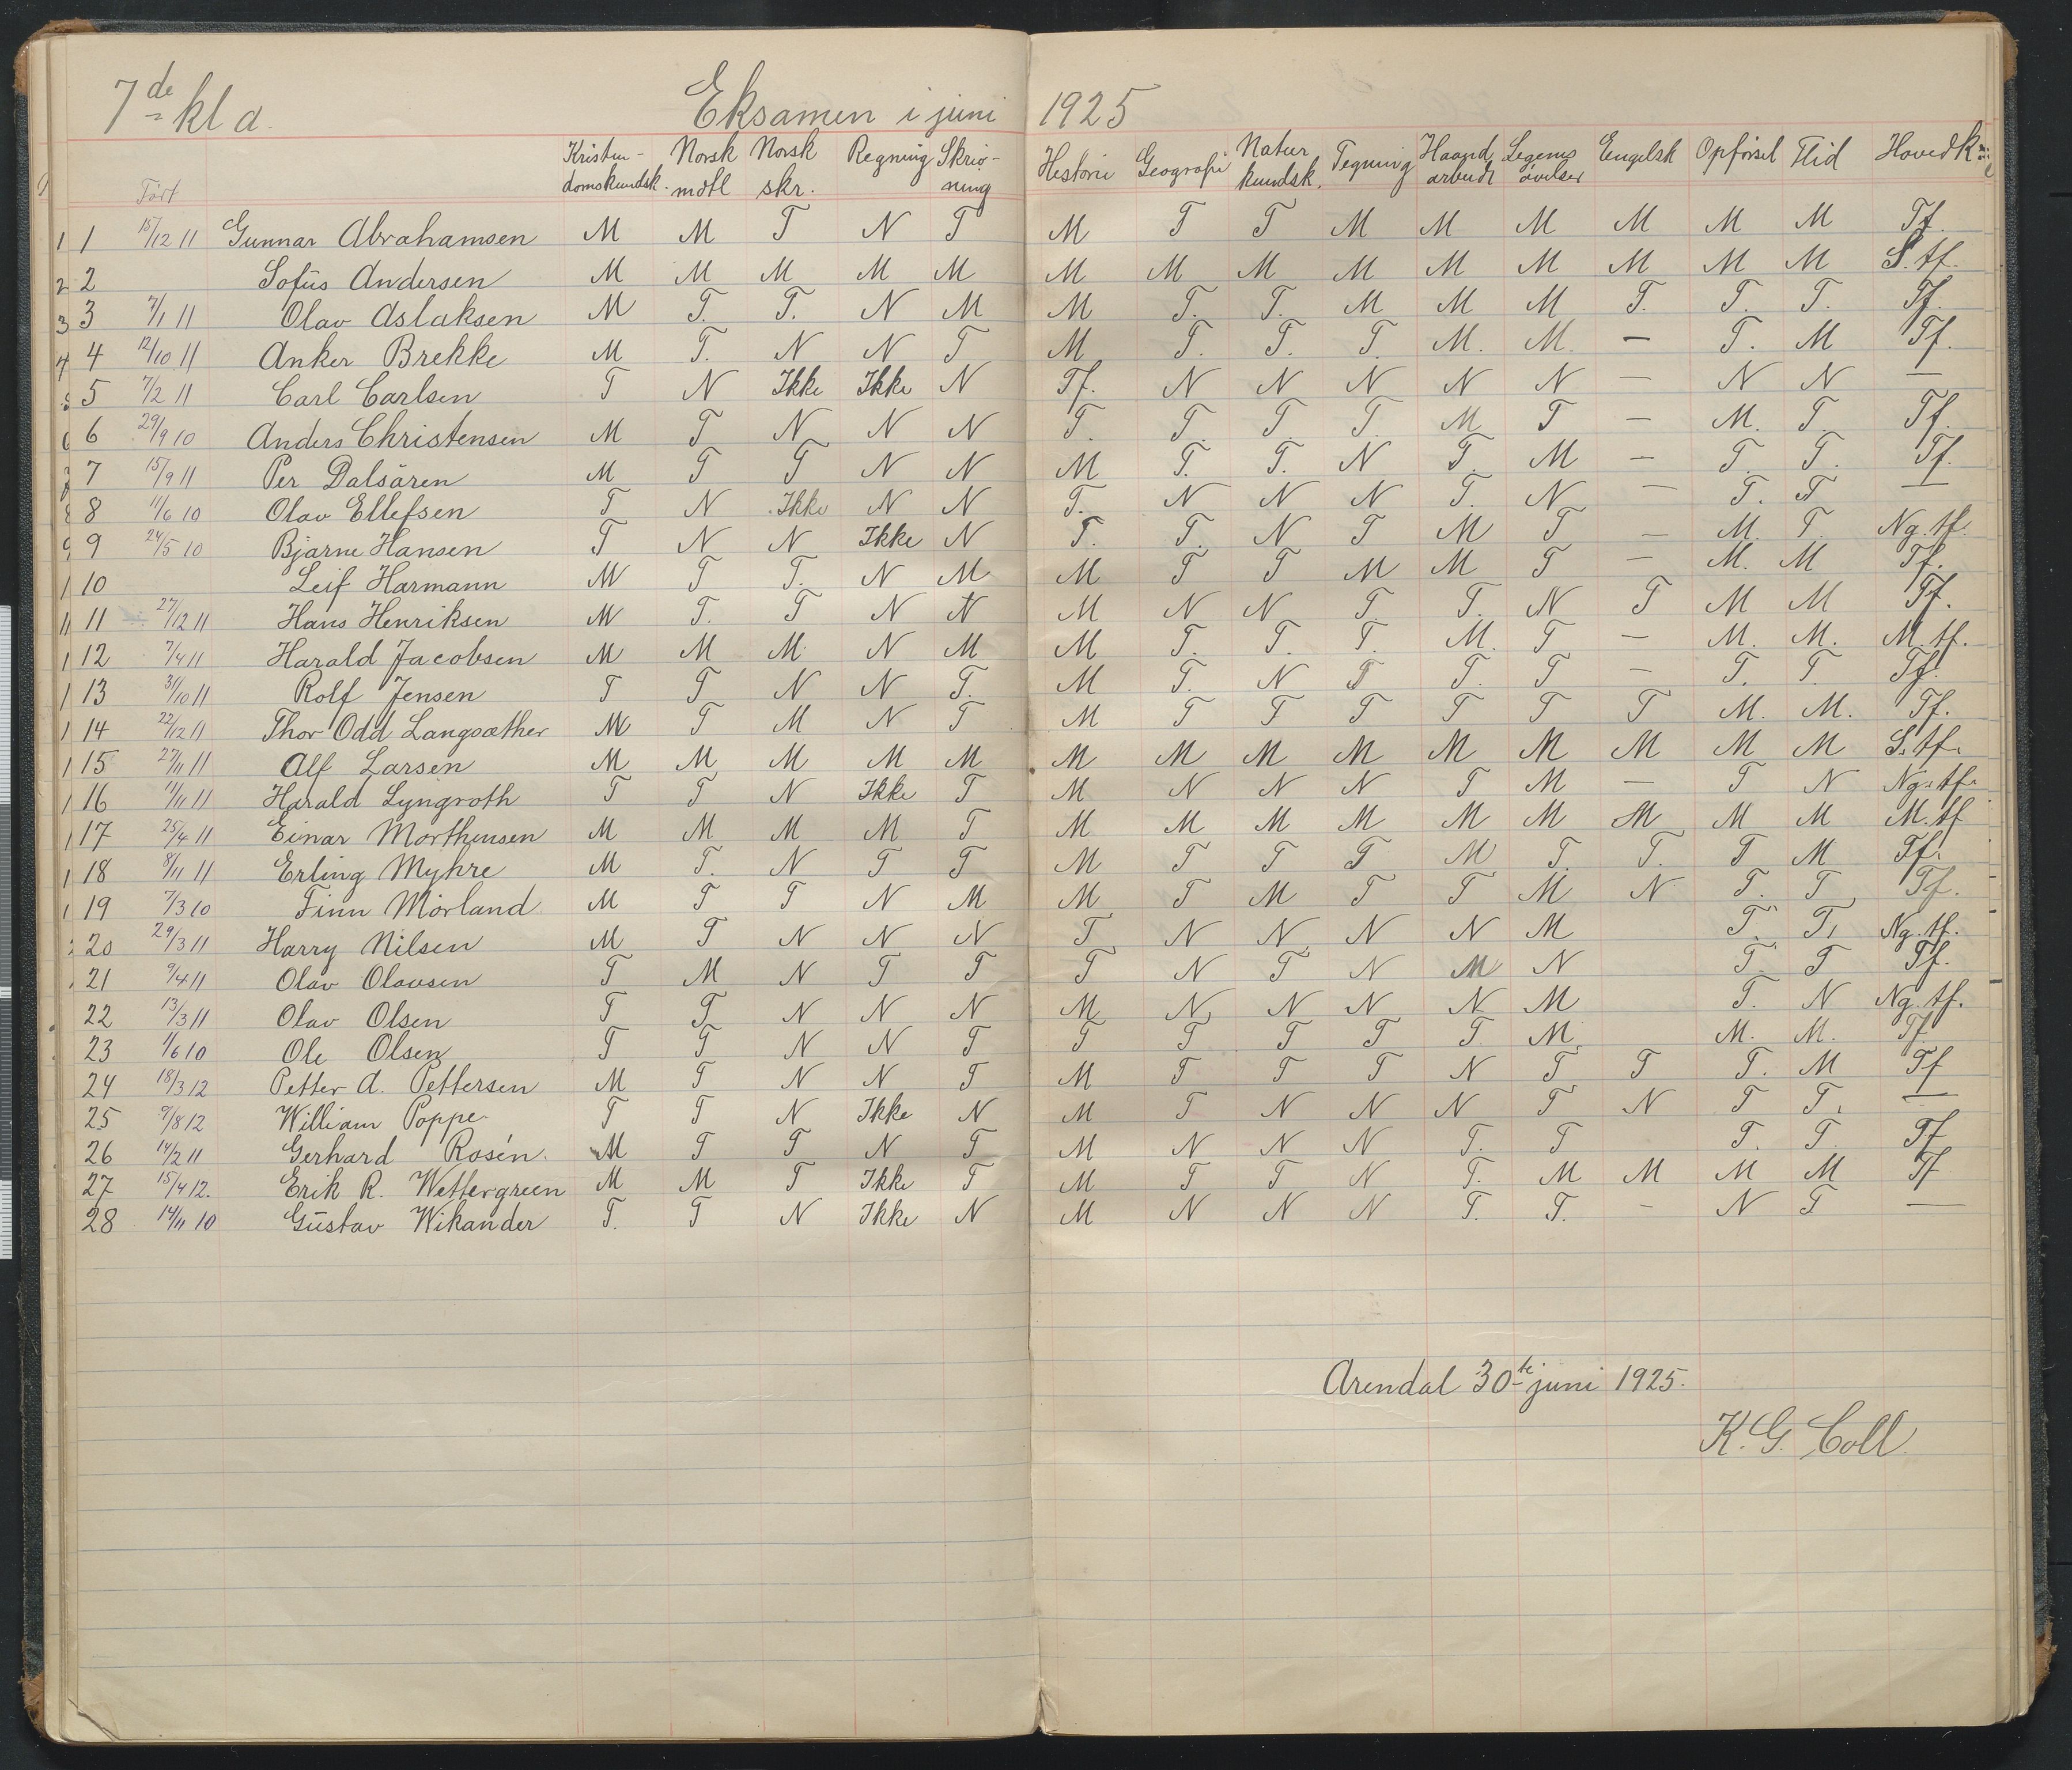 7de kl a. Eksamen i juni 1925
Født Kristen-domskundsk. Norsk mdtl Norsk skr. Regning Skriv-ning Historie Geografi Natur kundsk. Tegning Haand arbeide Legems øvelser Engelsk Opførsel Flid Hovedk.
1 15/12 11 Gunnar Abrahamsen M M T N T M T T M M M M M M Tf.
2 Sofus Andersen M M M M M M M M M M M M M M S. tf.
3 7/1 11 Olav Aslaksen M T. T. N M M T. T. M M M T. T. T. Tf.
4 12/10 11 Anker Brekke M T. N N T M T. T. T. M. M. — T. M Tf.
5 7/2 11 Carl Carlsen T N Ikke Ikke N Tf. N N N N N — N N —
6 29/9 10 Anders Christensen M T N N N T. T. T. T. M T — M. T. Tf.
7 15/9 11 Per Dalsåren M T T N N M T. T. N T. M — T. T. Tf.
8 11/6 10 Olav Ellefsen T N Ikke N N T. N N N T. N — T. T —
9 24/5 10 Bjarne Hansen T N N Ikke N T. T. N T M T — M. T. Ng. tf.
10 Leif Harmann M T T. N M M T T M M T — M. M Tf.
11 27/12 11 Hans Henriksen M T. T N N M N N T. T. N T M M Tf.
12 7/4 11 Harald Jacobsen M M M N M M T. T. T. M. T — M. M. M. tf.
13 3/10 11 Rolf Jensen T T N N T. M T. N T T. T — T. T. Tf.
14 22/12 11 Thor Odd Langsæther M T M N T M T T T T T T M. M. Tf.
15 27/11 11 Alf Larsen M M M M M M M M M M M M M M S. tf.
16 11/11 11 Harald Lyngroth T T N Ikke T M N N N T M — T N Ng. tf.
17 25/4 11 Einar Morthensen M M M M T M M M M M M M M M M. tf
18 8/11 11 Erling Myhre M T. N T T M T T T M T. T. T M Tf.
19 7/3 10 Finn Mørland M T T N M M T M T T M N T. T Tf.
20 29/3 11 Harry Nilsen M T N N N T N N N N M T. T. Ng. tf.
21 9/4 11 Olav Olavsen T M N T T T N T N M N T. T Tf.
22 13/3 11 Olav Olsen T T N N N M N N N N M T. N Ng. tf.
23 1/6 10 Ole Olsen T T N N T T T T T T. M M. M. Tf.
24 18/3 12 Petter A. Pettersen M T N N T M T T T N T T T. M Tf
25 9/8 12 William Poppe T T N Ikke N M T N N N T N T T. —
26 14/2 11 Gerhard Rosén. M T T N T M N N N T. T T. T Tf
27 15/4 12. Erik R. Wettergreen M M T Ikke T M T T N T. M M M M Tf
28 14/11 10 Gustav Wikander T. T N Ikke N M N N N T. T. — N T —
Arendal 30te juni 1925.
K. G. Coll.